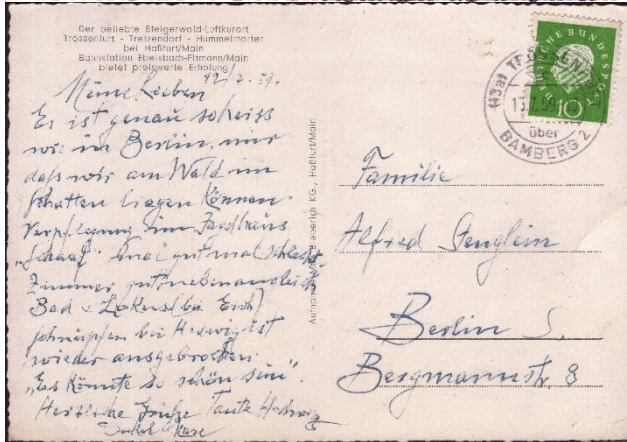 Der beliebte Steigerwald-Luftkurort
Trossenfurt - Tretzendorf - Hummelmarter
bei Haßfurt/Main
Bahnstation Ebelsbach-Eltmann/Main
bietet preiswerte Erholung
12/7. 59.
Meine Lieben
Es ist genau so heiss
wie in Berlin, nur
daß wir am Wald im
Schatten liegen können.
Verpflegung im Jagdhaus
mal gut mal schlecht.
Zimmer gut
Bad (bei Euch)
schnupfen bei Hedwig ist
wieder ausgebrochen.
"Es könnte so schön sein".
Herzliche Grüße Tante Hedwig
Onkel
Haßfurt/Main
DEUTSCHE BUNDESPOST
10
(13a)
über
BAMBERG 2
Familie
Alfred Stenglein
Berlin S.
Bergmannstr. 8